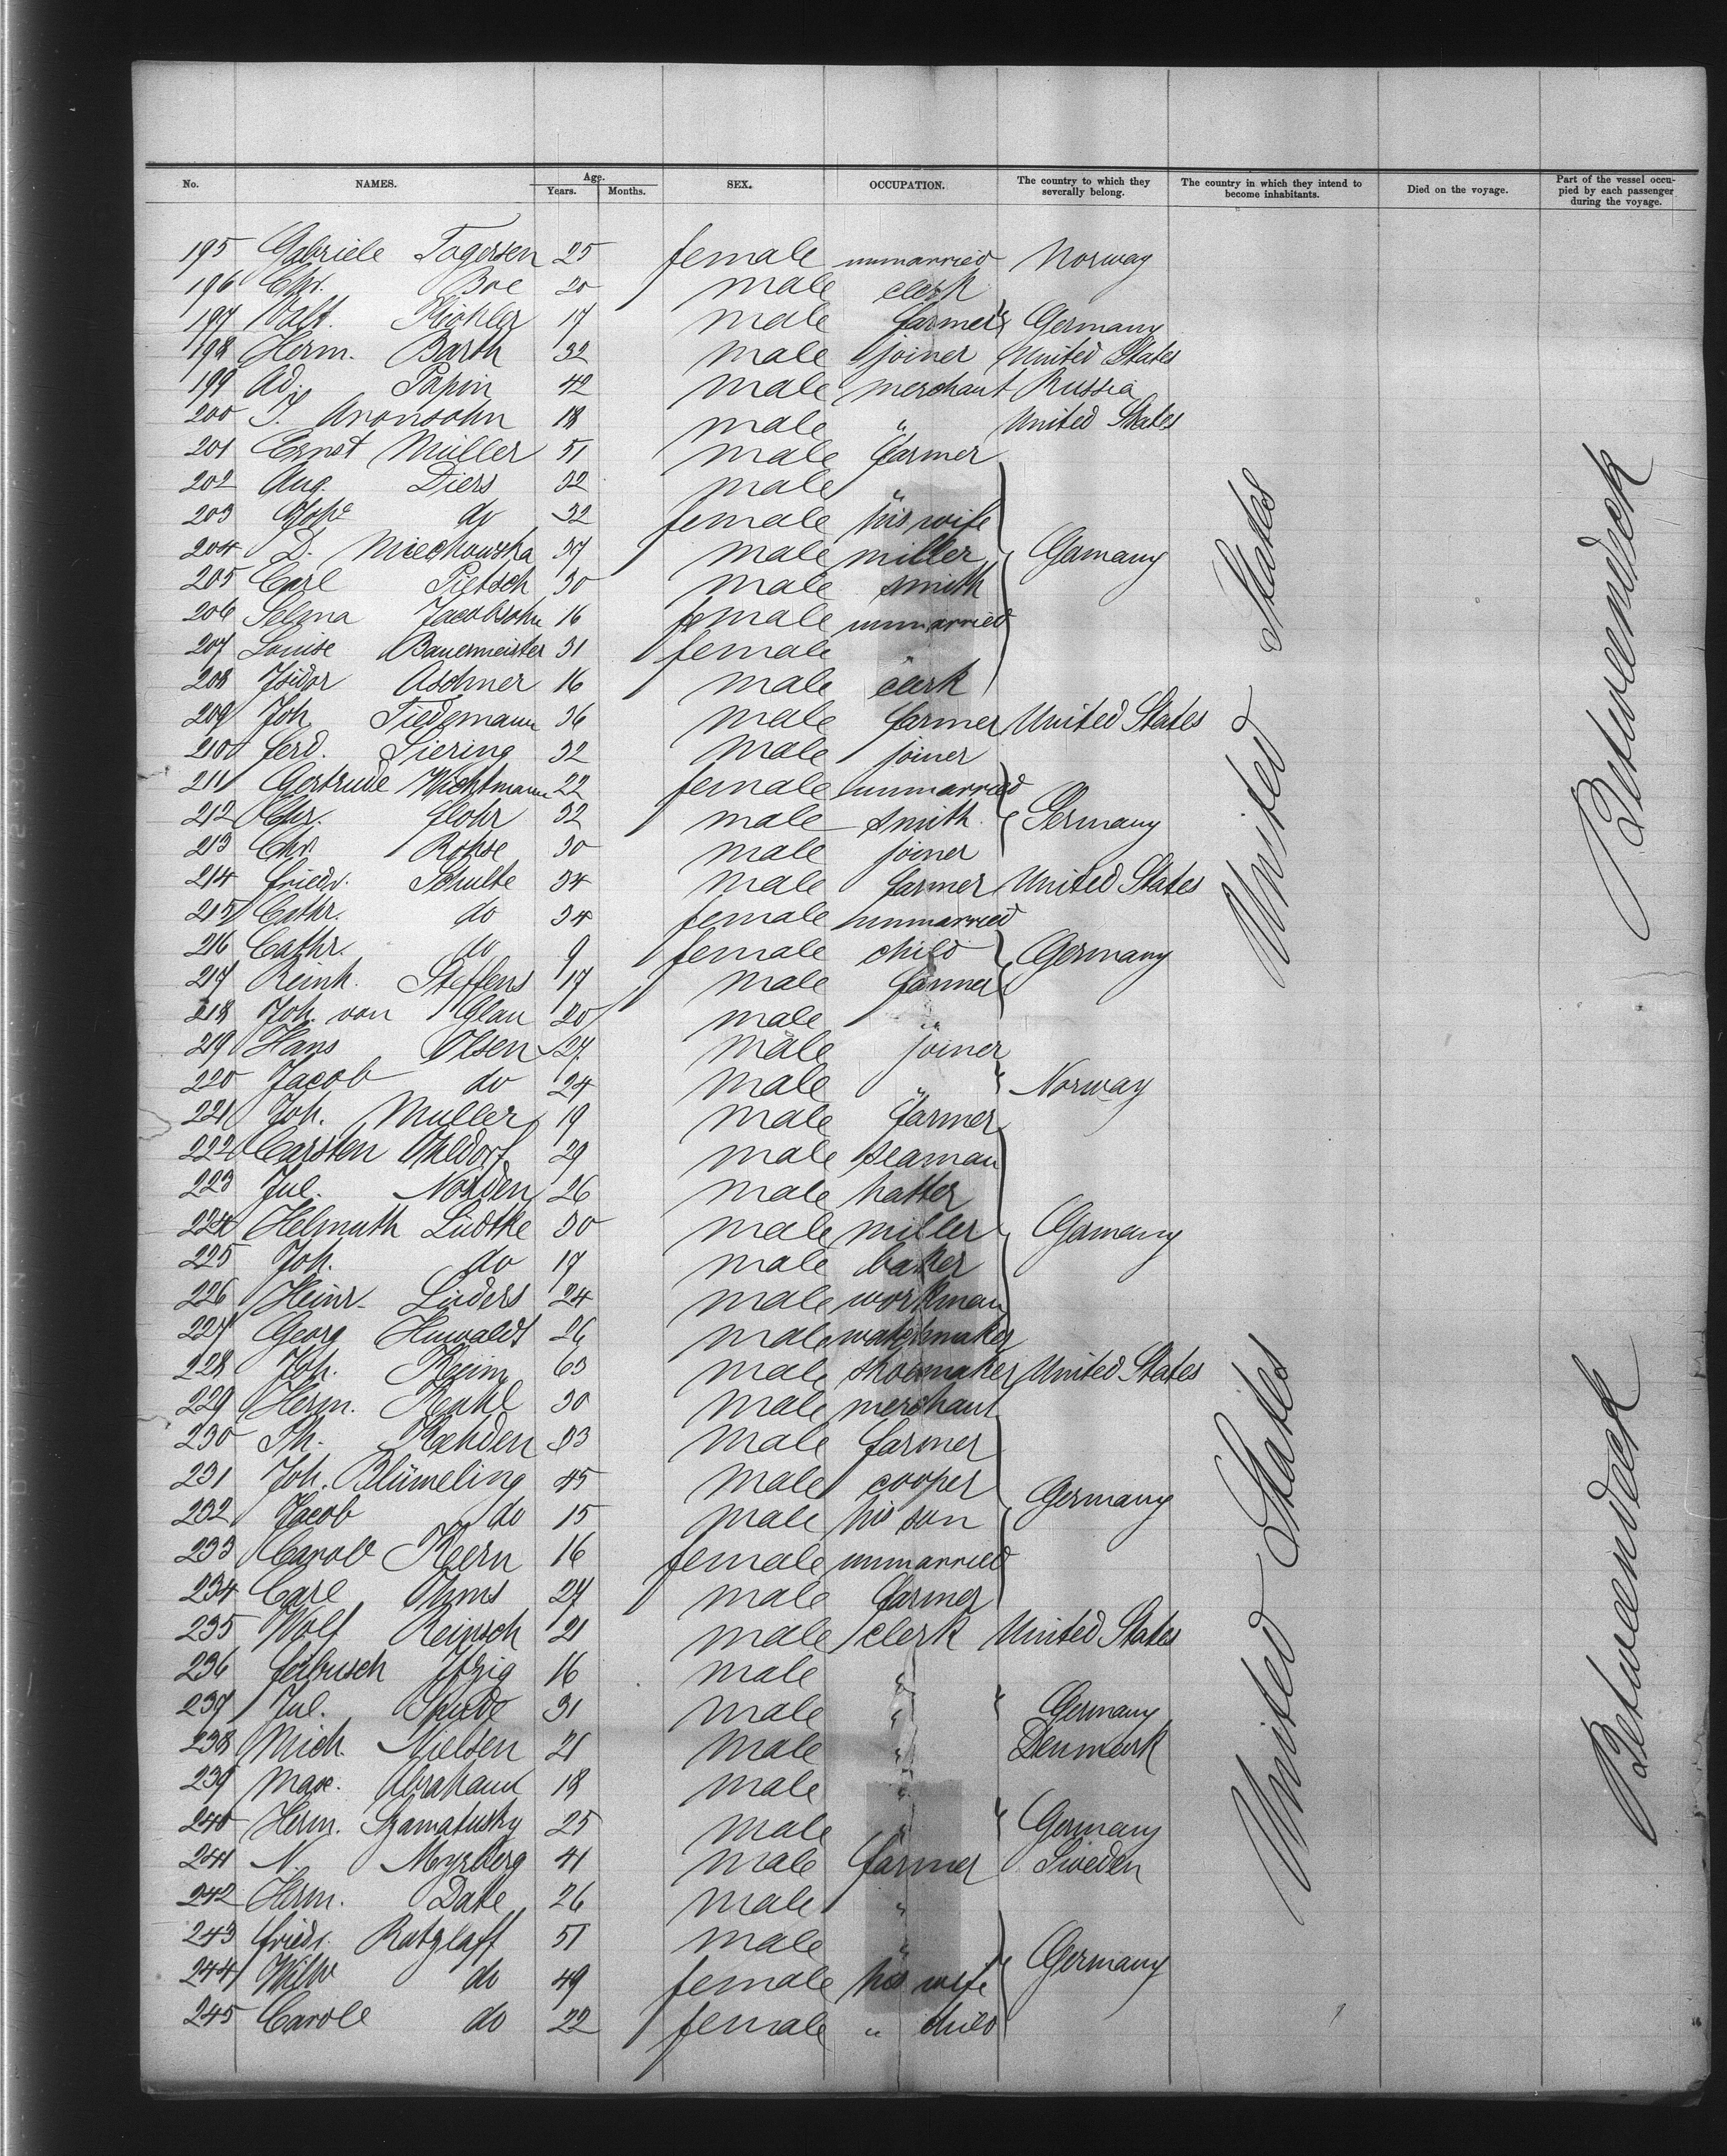 No. NAMES. Age. Years. Months. SEX. OCCUPATION. The country to which they severally belong. The country in which they intend to become inhabitants. Died on the voyage. Part of the vessel occupied by each passenger during the voyage.
195 Gabriele Togersen 25 female unmarried Norway
196 Chr. Boe 20 male clerk
197 male farmer " Germany
198 Herm. Barth 32 male joiner United States
199 Ad. Papin 42 male merchant Russia
200 J. Aronsohn 18 male " United States
201 Ernst Müller 51 male farmer
202 Aug. Diers 32 male "
203 do 32 female his wife
204 D. Miechowska 37 male miller Germany
205 Carl Pietsch 30 male smith
206 Selma Jacobsohn 16 female unmarried
207 Louise Bauermeister 31 female "
208 Isidor Aschner 16 male clerk
209 Joh. Tiedemann 36 male farmer United States
210 Ferd. Siering 32 male joiner
211 Gertrude Wichtmann 22 female unmarried
212 Chr. Flohr 32 male smith Germany
213 Chr. Rohse 30 male joiner
214 Friedr. Schulte 34 male farmer United States
215 Cathr. do 34 female unmarried
216 Cathr. do 9 female child Germany
217 Reinh. Steffens 17 male farmer
218 Joh. von Glan 20 male "
219 Hans Olsen 27 male joiner
220 Jacob do 24 male " " Norway
221 Joh. Muller 19 male farmer
222 Carsten Ohldorf 29 male seaman
223 Jul. Norden 26 male hatter
224 Helmuth Lüdtke 30 male miller Germany
225 Joh. do 17 male baker
226 Heinr. Lüders 24 male workman
227 Georg Huwaldt 26 male watchmaker
228 Joh. Kreim 63 male shoemaker United States
229 Herm. 30 male merchant
230 Th. Rahden 23 male farmer
231 Joh. Blümeling 45 male cooper Germany
232 Jacob do 15 male his son
233 Carol Kern 16 female unmarried
234 Carl Ohms 27 male farmer
235 Wolf Reinsch 21 male clerk United States
236 Itzig 16 male "
237 Jul. 31 male " " Germany
238 Mich. Nielsen 21 male " Denmark
239 Max. Abraham 18 male "
240 Herm. Szamatusky 25 male " " Germany
241 N. Myrberg 41 male farmer Sweden
242 Herm. Date 26 male "
243 Friedr. Ratzlaff 51 male "
244 Wilh. do 49 female his wife Germany
245 Carole do 22 female " child
United States
United States
Betweendeck
Betweendeck